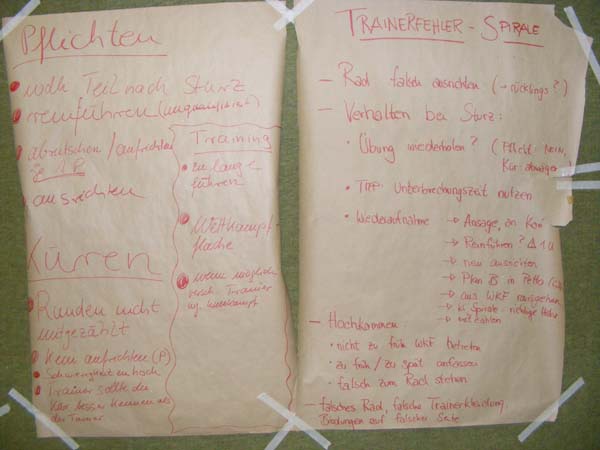 Pflichten
wdh Teil nach Sturz
reinführen (unqualifiziert)
abrutschen / aufrichten
ausrichten
Training
zu lange
führen
Wettkampf
fläche
wenn möglich
versch. Trainer
Küren
Runden nicht
mitgezählt
Kein aufrichten (P)
Schwierigkeiten hoch
Trainer sollte die
Kür besser kennen als
der Turner
TRAINERFEHLER - SPIRALE
– Rad falsch ausrichten (→ rücklings?)
– Verhalten bei Sturz:
• Übung wiederholen? (Pflicht: nein,
Kür:
• TIPP: Unterbrechungszeit nutzen
• Wiederaufnahme → Ansage, an Kari
→ Reinführen? Δ 1 Ü
→ neu ausrichten
→ Plan B in Petto
→ aus WKF rausgehen
→ kl. Spirale - richtige Höhe
→ mitzählen
– Hochkommen
• nicht zu früh WKF betreten
• zu früh / zu spät anfassen
• falsch zum Rad stehen
– falsches Rad, falsche Trainerkleidung,
Bindungen auf falscher Seite